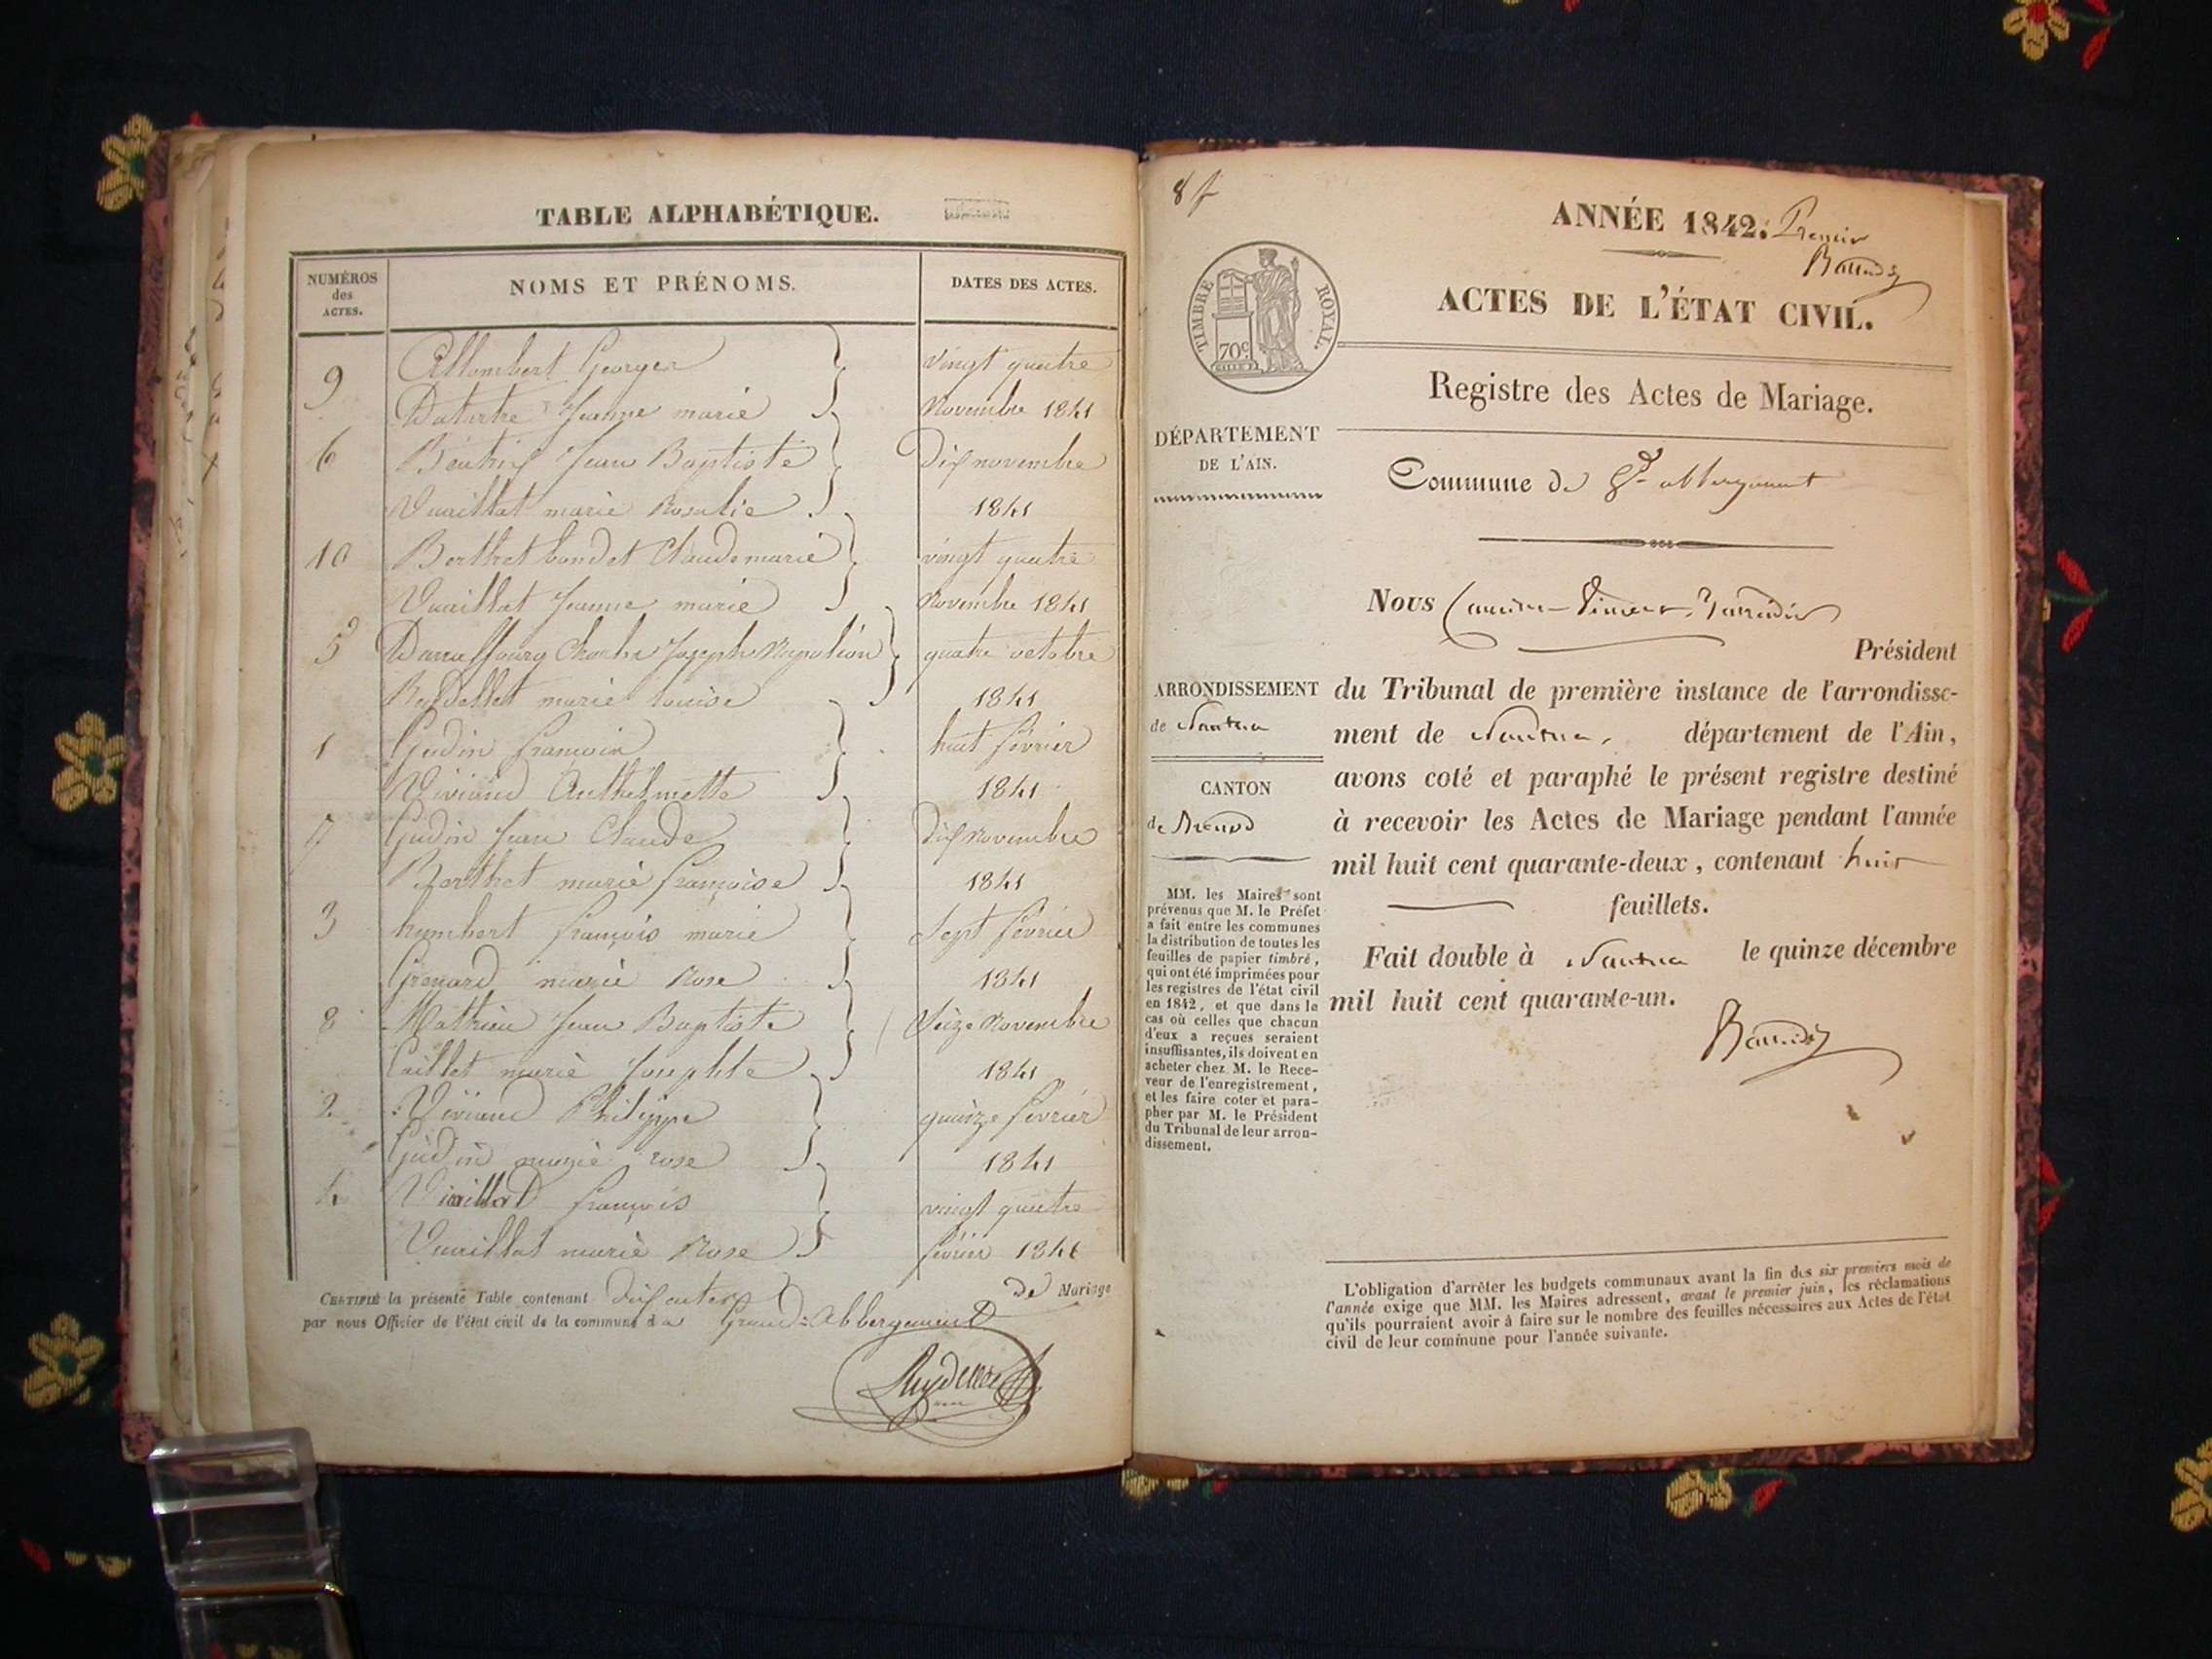 TABLE ALPHABÉTIQUE.
NUMÉROS
des
ACTES.
NOMS ET PRÉNOMS.
DATES DES ACTES.
9 Allombert Georges vingt quatre
Jeanne marie Novembre 1841
6 Jean Baptiste Dix novembre
Vuaillat marie Rosalie 1841
10 Berthet bondet Claude marie vingt quatre
Vuaillat Jeanne marie Novembre 1841
5 Charles Joseph Napoléon quatre octobre
marie louise 1841
1 Godin françois huit février
Viviand Anthelmette 1841
7 Godin Jean Claude Dix Novembre
Berthet marie françoise 1841
3 humbert françois marie Sept février
Grenard marie Rose 1841
8 Mathieu Jean Baptiste Seize Novembre
Caillet marie Josephte 1841
2 Viviand Philippe quinze février
Godin marie rose 1841
4 françois vingt quatre
Vuaillat marie Rose février 1841
CERTIFIÉ la présente Table contenant Dix actes de Mariage
par nous Officier de l'état civil de la commune du Grand-Abbergement
8 f
ANNÉE 1842. Premier
TIMBRE ROYAL.
70c
ACTES DE L'ÉTAT CIVIL.
Registre des Actes de Mariage.
DÉPARTEMENT
DE L'AIN.
Commune de Gd abbergement
Nous
Président
ARRONDISSEMENT
de Nantua
CANTON
de Brenod
du Tribunal de première instance de l'arrondisse-
ment de Nantua, département de l'Ain,
avons coté et paraphé le présent registre destiné
à recevoir les Actes de Mariage pendant l'année
mil huit cent quarante-deux, contenant huit
feuillets.
Fait double à Nantua le quinze décembre
mil huit cent quarante-un.
MM. les Maires sont
prévenus que M. le Préfet
a fait entre les communes
la distribution de toutes les
feuilles de papier timbré,
qui ont été imprimées pour
les registres de l'état civil
en 1842, et que dans le
cas où celles que chacun
d'eux a reçues seraient
insuffisantes, ils doivent en
acheter chez M. le Rece-
veur de l'enregistrement,
et les faire coter et para-
pher par M. le Président
du Tribunal de leur arron-
dissement.
L'obligation d'arrêter les budgets communaux avant la fin des six premiers mois de
l'année exige que MM. les Maires adressent, avant le premier juin, les réclamations
qu'ils pourraient avoir à faire sur le nombre des feuilles nécessaires aux Actes de l'état
civil de leur commune pour l'année suivante.